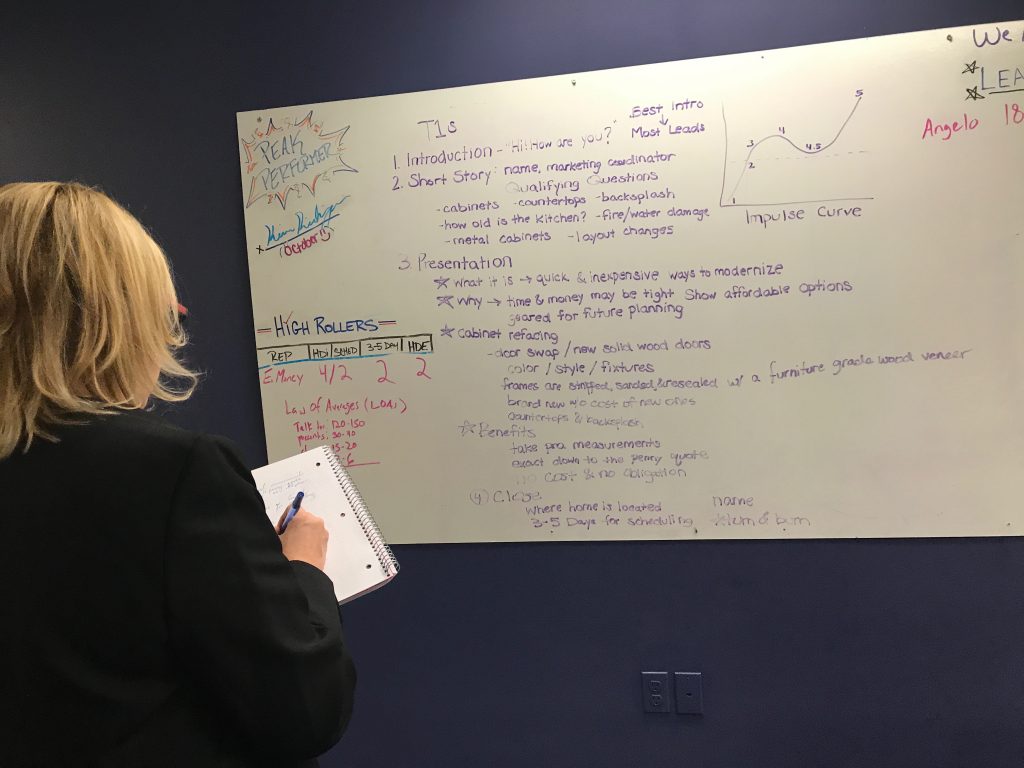 PEAK
PERFORMER
(October!)
T1s
Best Intro
Most Leads
1. Introduction - "Hi! How are you?"
2. Short Story: name, marketing coordinator
Qualifying Questions
-cabinets -countertops -backsplash
-how old is the kitchen? -fire/water damage
-metal cabinets -layout changes
3. Presentation
What it is → quick & inexpensive ways to modernize
Why → time & money may be tight Show affordable options
geared for future planning
Cabinet refacing
-door swap / new solid wood doors
color / style / fixtures
frames are stripped, sanded, & resealed w/ a furniture grade wood veneer
brand new w/o cost of new ones
countertops & backsplash
Benefits
take pro. measurements
exact down to the penny quote
no cost & no obligation
(4) Close
where home is located name
3-5 Days for scheduling
1
2
3
4
4.5
5
Impulse Curve
HIGH ROLLERS
REP HDI SCHED 3-5 DAY HDE
E. Money 4/2 2 2
Law Of Averages (LOAs)
Talk to: 120-150
presents: 30-40
15-20
We
LEA
Angelo 18